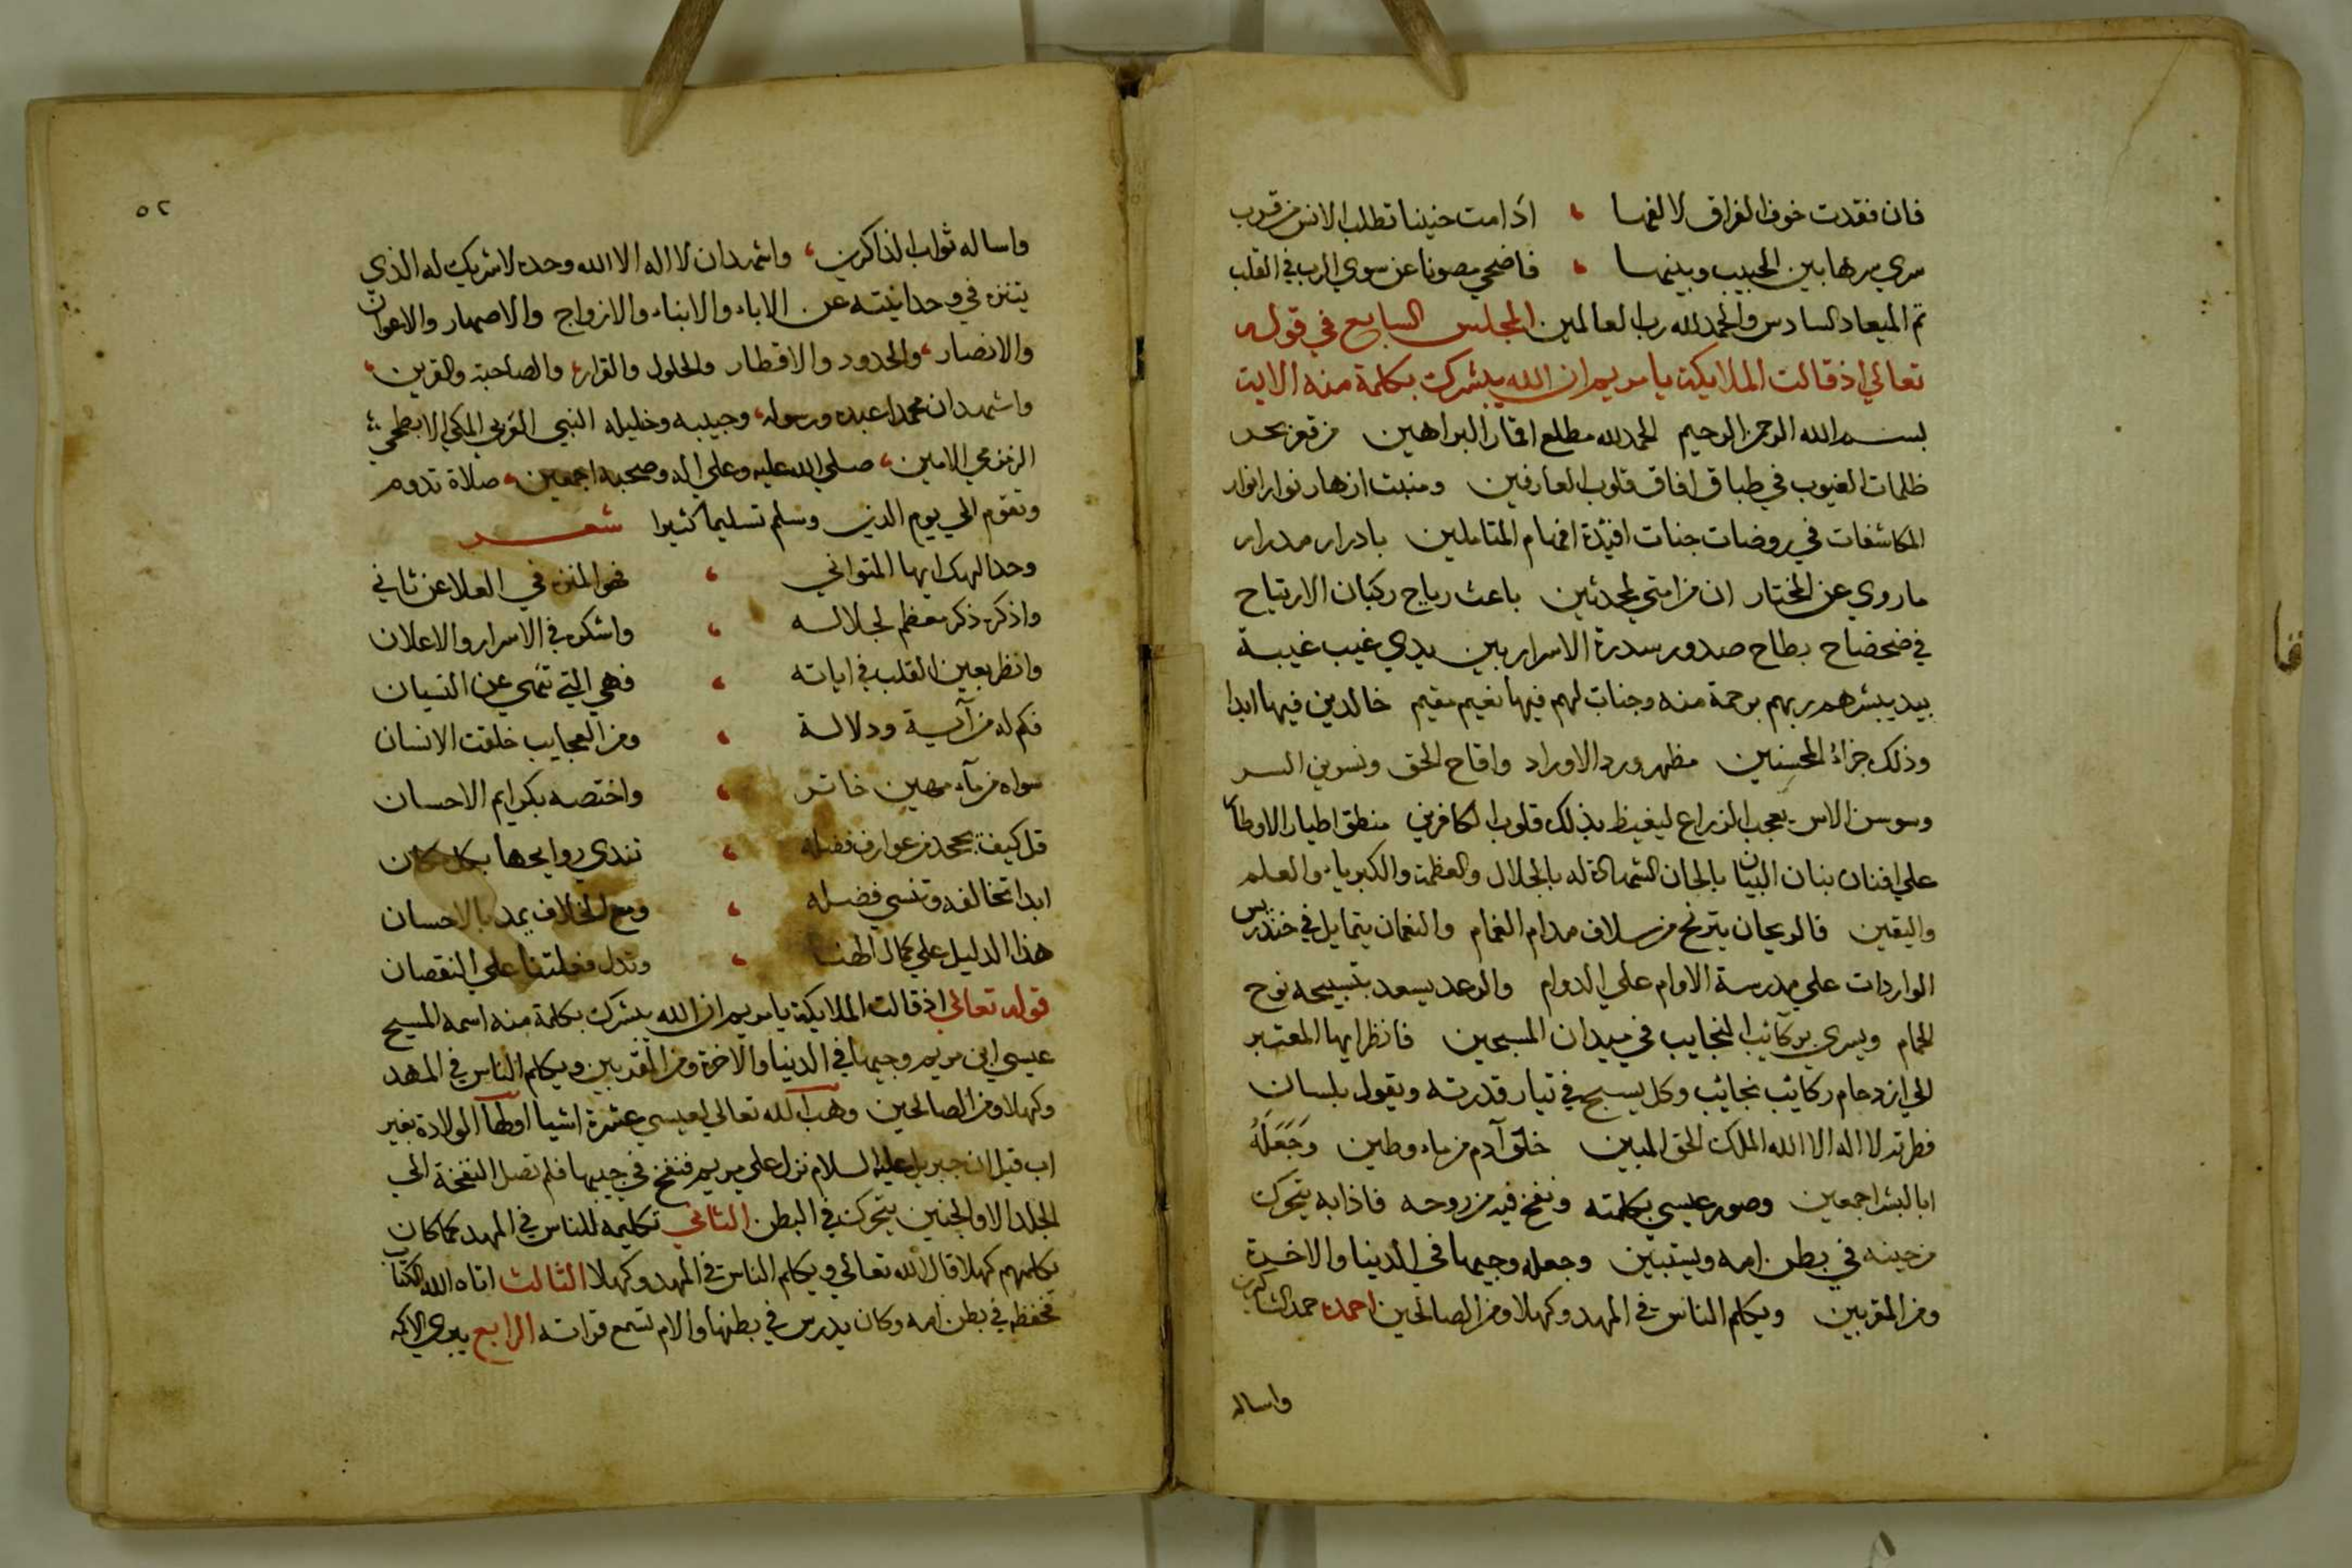 فان فقدت خوف الفراق لالفها ، ادامت حنينا تطلب الانس من قرب
سري سرها بين الحبيب وبينها ، فاضحي مصونا عن سوي الرب في القلب
تم الميعاد السادس والحمد لله رب العالمين المجلس السابع في قوله
تعالي اذ قالت الملايكة يا مريم ان الله يبشرك بكلمة منه الاية
بسم الله الرحمن الرحيم الحمد لله مطلع اقمار البراهين من قعر بحر
ظلمات الغيوب في طباق افاق قلوب العارفين ومنبت ازهار نوار انوار
المكاشفات في روضات جنات افئدة افهام المتاملين بادرار مدرار
ما روي عن المختار ان من امتي لمحدثين باعث رياح ركبان الارتياح
في ضحضاح بطاح صدور سدرة الاسرار بين يدي غيب غيبة
بيد يبشرهم ربهم برحمة منه وجنات لهم فيها نعيم مقيم خالدين فيها ابدا
وذلك جزاؤ المحسنين مظهر ورد الاوراد واقاح الحق ونسرين السر
وسوسن الاس يعجب الزراع ليغيظ بذلك قلوب الكافرين منطق اطيار الاوطا
علي افنان بنان البيان بالحان الشهادة له بالجلال والعظمة والكبرياء والعلم
واليقين فالريحان يترنح من سلاف مدام الغمام والنعمان يتمايل في خندريس
الواردات علي مدرسة الاوام علي الدوام والرعد يسعد بتسبيحه نوح
الحمام ويسري بركائب النجايب في ميدان المسبحين فانظر ايها المعتبر
الي ازدحام ركائب نجائب وكل يسبح في تيار قدرته ويقول بلسان
فطرته لا اله الا الله الملك الحق المبين خلق آدم من ماء وطين وَجَعَلَهُ
ابا البشر اجمعين وصور عيسي بكلمته ونفخ فيه من روحه فاذا به يتحرك
من حينه في بطن امه ويستبين وجعله وجيها في الدنيا والاخرة
ومن المقربين ويكلم الناس في المهد وكهلا ومن الصالحين احمده حمد الشاكرين
واساله
٥٢
واساله ثواب الذاكرين ، واشهد ان لا اله الا الله وحده لا شريك له الذي
يتنزه في وحدانيته عن الاباء والابناء والازواج والاصهار والاعوان
والانصار ، والحدود والاقطار والحلول والقرار ، والصاحبة والقرين ،
واشهد ان محمدا عبده ورسوله ، وحبيبه وخليله النبي العربي المكي الابطحي
الزمزمي الامين ، صلي الله عليه وعلي اله وصحبه اجمعين ، صلاة تدوم
وتقوم الي يوم الدين وسلم تسليما كثيرا شعر
وحد الهك ايها المتواني ، فهو المنزه في العلا عن ثاني
واذكره ذكر معظم لجلاله ، واشكره في الاسرار والاعلان
وانظر بعين القلب في اياته ، فهي التي تنهي عن النسيان
فكم له من آية ودلالة ، ومن العجايب خلقة الانسان
سواه من مآء مهين خاثر ، واختصه بكرايم الاحسان
قل كيف تجحد من عوارف فضله ، تندي روايحها بكل مكان
ابدا تخالفه وتنسي فضله ، ومع الخلاف يمد بالاحسان
هذا الدليل علي كمال الهنا ، وتدل فعلتنا علي النقصان
قوله تعالي اذ قالت الملايكة يا مريم ان الله يبشرك بكلمة منه اسمه المسيح
عيسي ابن مريم وجيها في الدنيا والاخرة ومن المقربين ويكلم الناس في المهد
وكهلا ومن الصالحين وهب الله تعالي لعيسي عشرة اشيا اولها الولادة بغير
اب قيل ان جبريل عليه السلام نزل علي مريم فنفخ في جيبها فلم تصل النفخة الي
الجلد الا والجنين يتحرك في البطن الثاني تكليمه للناس في المهد كما كان
يكلمهم كهلا قال الله تعالي ويكلم الناس في المهد وكهلا الثالث اتاه الله الكتاب
فحفظه في بطن امه وكان يدرس في بطنها والام تسمع قراته الرابع يبري الاكمه